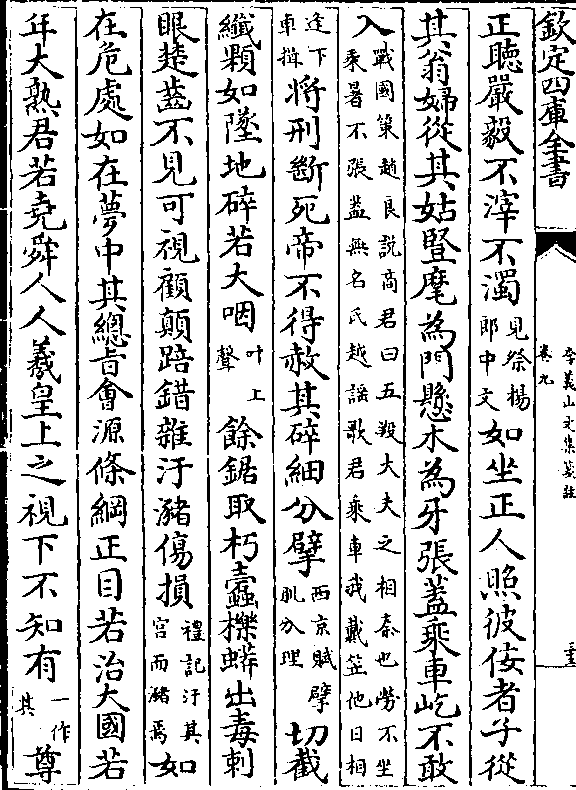 欽定四庫全書
李義山文集箋註
卷九
正聽嚴毅不滓不濁見祭楊郎中文如坐正人照彼佞者子從
其翁婦從其姑豎麾為門懸木為牙張蓋乘車屹不敢
入戰國策趙良說商君曰五羖大夫之相秦也勞不坐乘暑不張蓋無名氏越謡歌君乘車我戴笠他日相
逢下車揖將刑斷死帝不得赦其碎細分擘西京賦擘肌分理切截
纖顆如墜地碎若大咽叶上聲餘鋸取朽蠹櫟蟒出毒刺
眼楚齒不見可視顧顛踣錯雜汙瀦傷損禮記汙其宮而瀦焉如
在危處如在夢中其總旨會源條綱正目若治大國若
年大熟君若堯舜人人羲皇上之視下不知有一作其尊